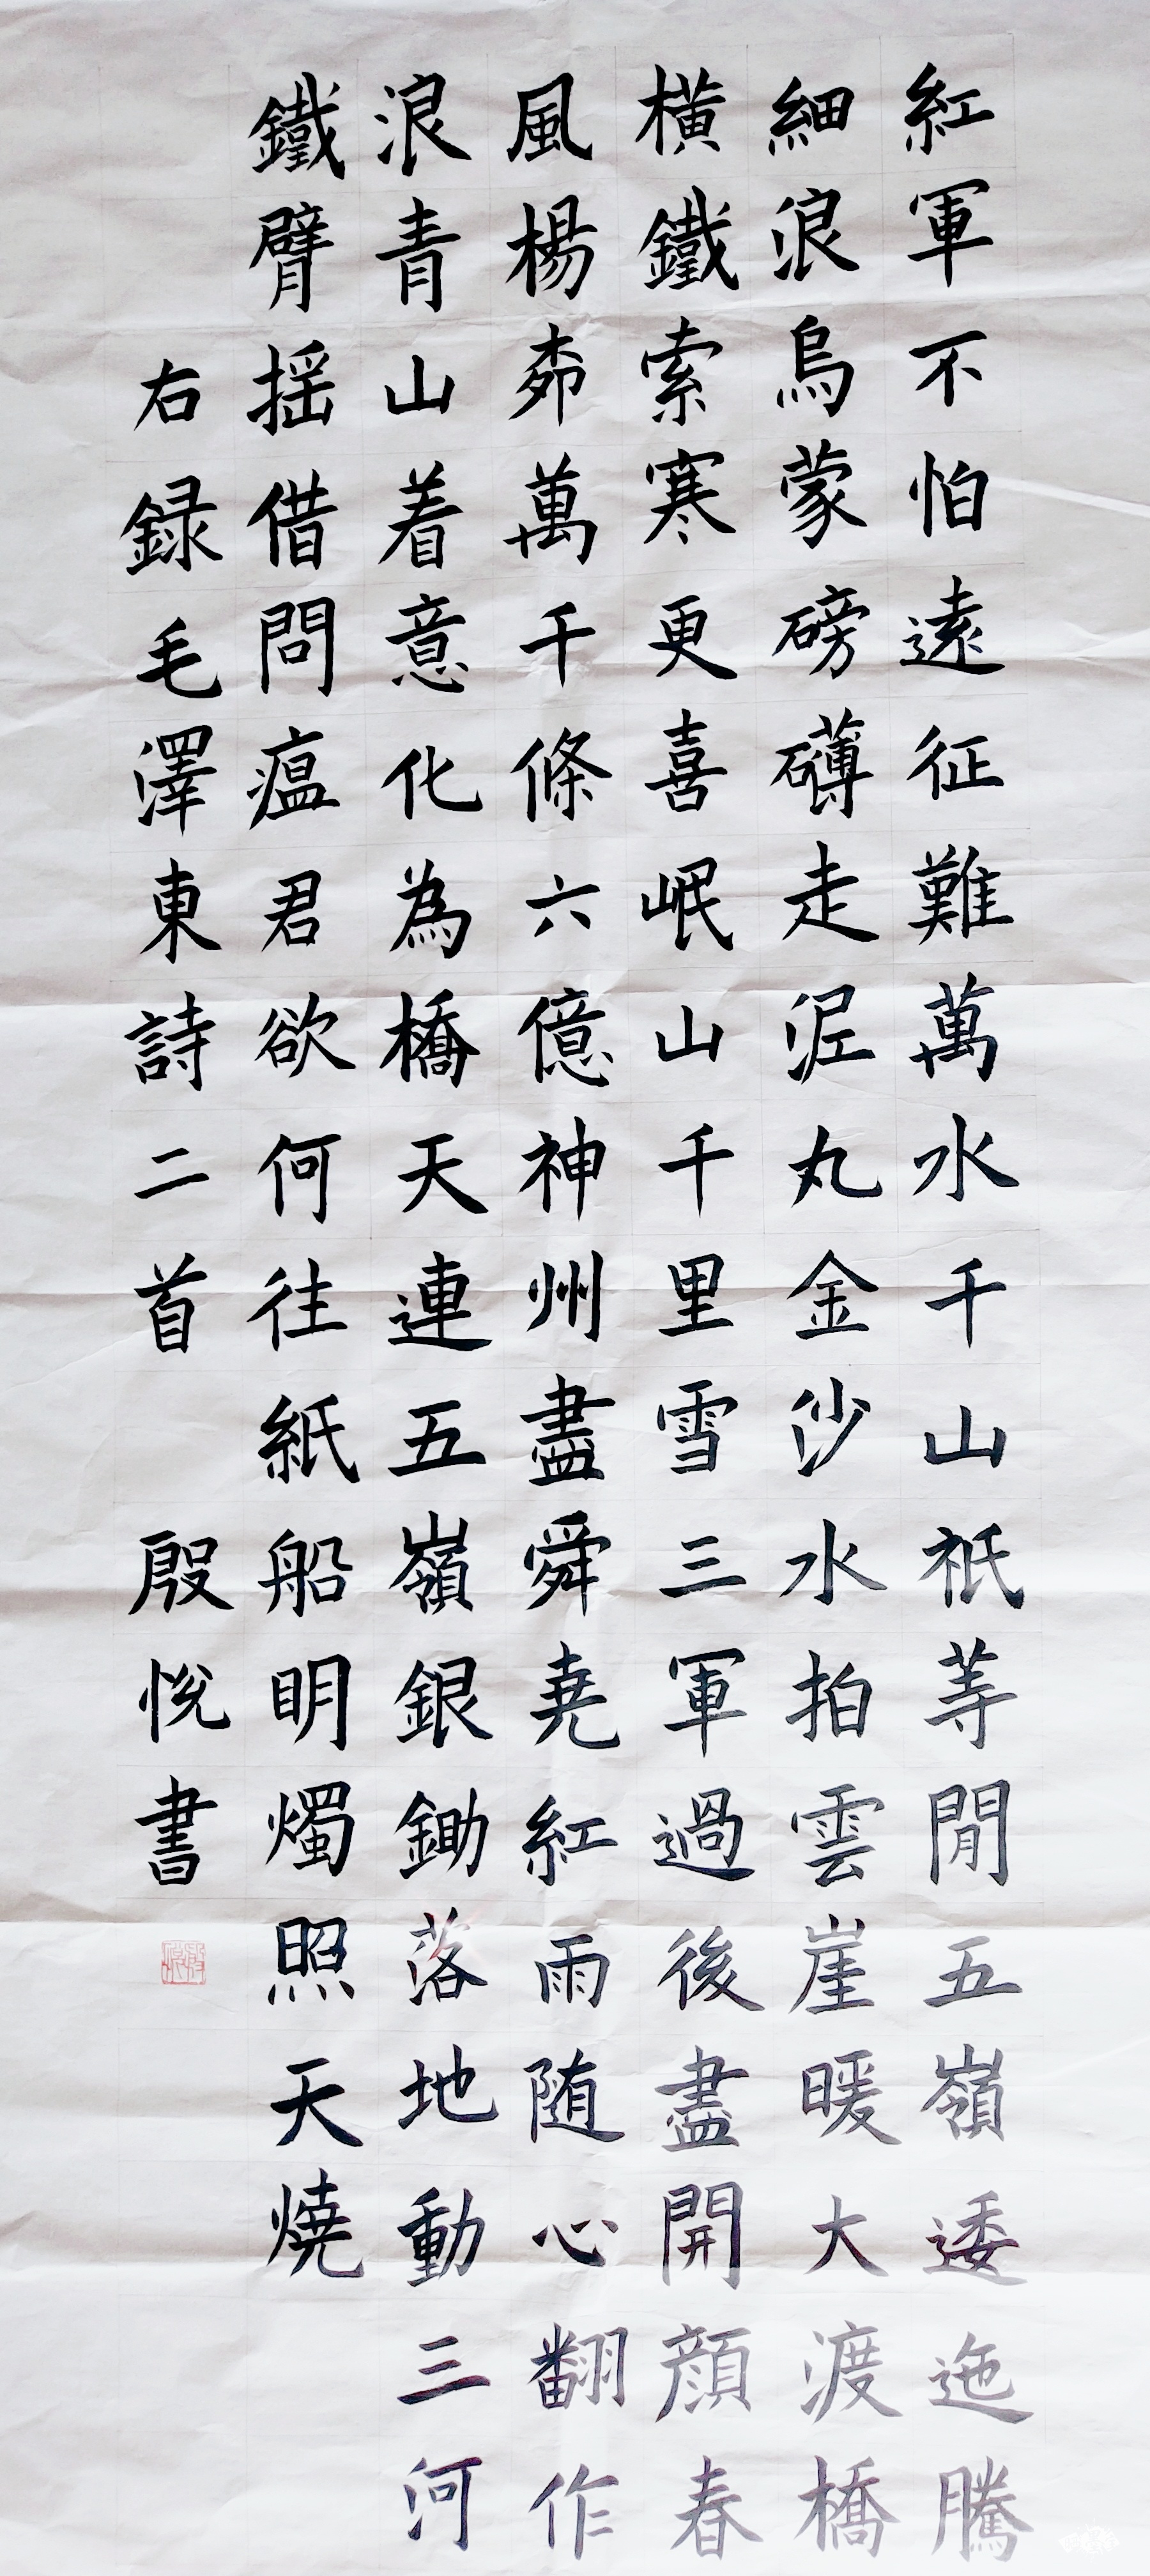 紅軍不怕遠征難萬水千山祇等閒五嶺逶迤騰
細浪烏蒙磅礴走泥丸金沙水拍雲崖暖大渡橋
橫鐵索寒更喜岷山千里雪三軍過後盡開顏春
風楊柳萬千條六億神州盡舜堯紅雨随心翻作
浪青山着意化為橋天連五嶺銀鋤落地動三河
鐵臂摇借問瘟君欲何往紙船明燭照天燒
右録毛澤東詩二首
殷悅書